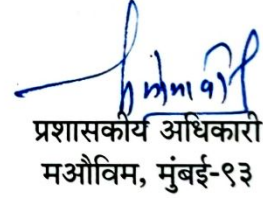 प्रशासकीय अधिकारी
मऔविम, मुंबई-९३